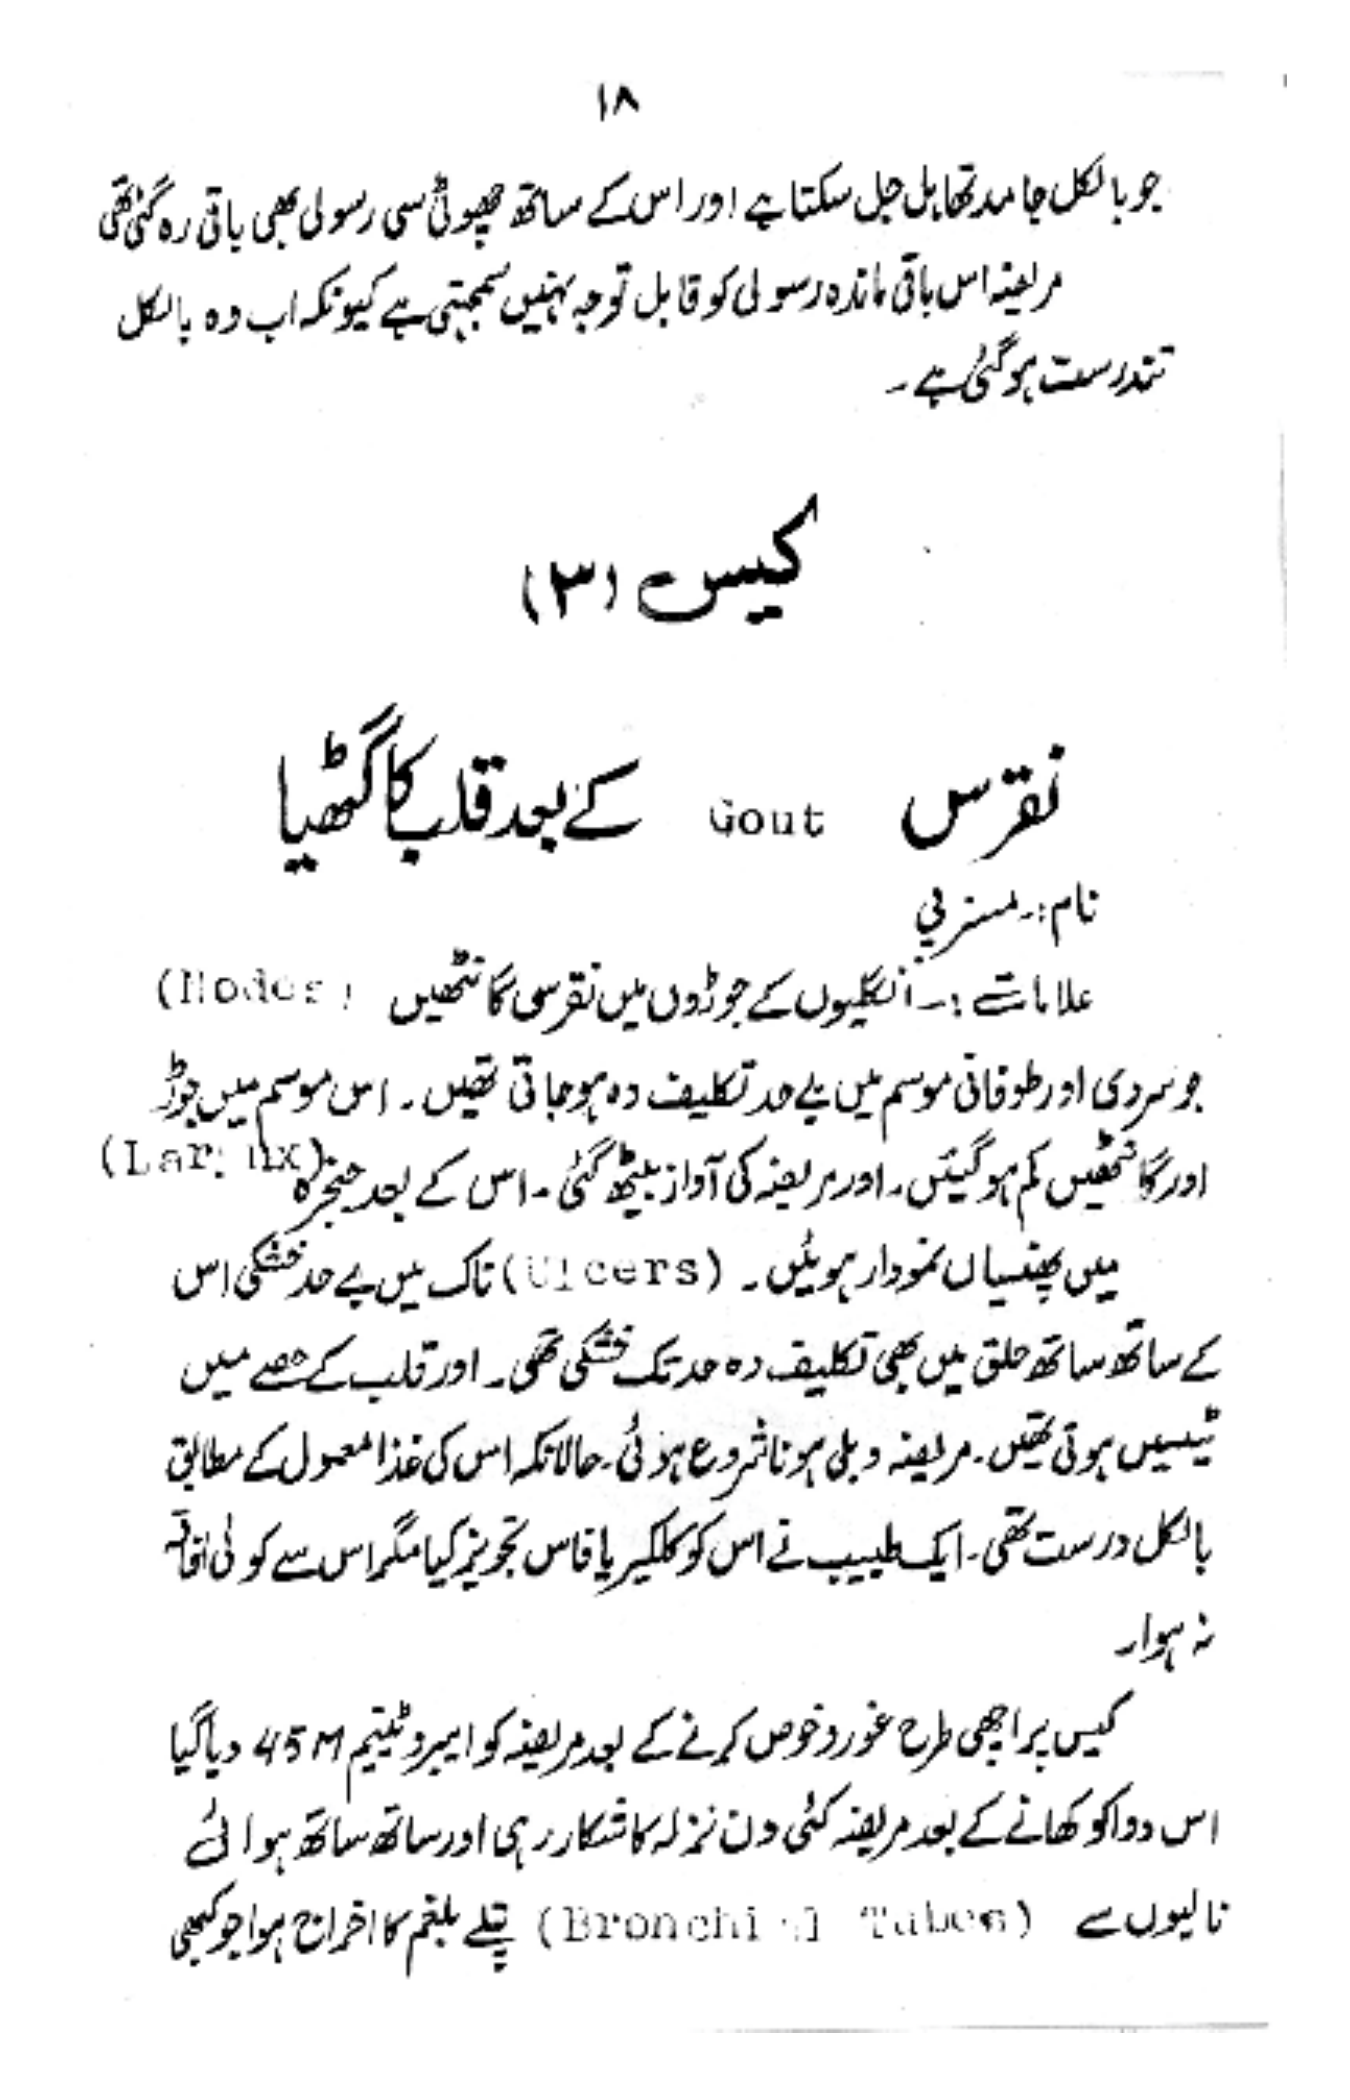 ۱۸
جو بالکل جامد تھا ہل جل سکتا ہے اور اس کے ساتھ چھوٹی سی رسولی بھی باقی رہ گئی تھی
مریضہ اس باقی ماندہ رسولی کو قابل توجہ نہیں سمجہتی ہے کیونکہ اب وہ بالکل
تندرست ہو گئی ہے ۔
کیس (۳)
نقرس Gout کے بعد قلب کا گٹھیا
نام :۔ مسز بی
علامات :۔ انگلیوں کے جوڑوں میں نقرسی گانٹھیں (Nodes)
جو سردی اور طوفانی موسم میں بے حد تکلیف دہ ہو جاتی تھیں ۔ اس موسم میں جوڑ
اور گانٹھیں کم ہو گیئں ۔ اور مریضہ کی آواز بیٹھ گئی ۔ اس کے بعد حنجرہ (Larynx)
میں پھنسیاں نمودار ہویئں ۔ (Ulcers) ناک میں بے حد خشکی اس
کے ساتھ ساتھ حلق میں بھی تکلیف دہ حد تک خشکی تھی ۔ اور قلب کے حصے میں
ٹیسیں ہوتی تھیں ۔ مریضہ دبلی ہونا شروع ہوئی ۔ حالانکہ اس کی غذا معمول کے مطابق
بالکل درست تھی ۔ ایک طبیب نے اس کو کلکیریا فاس تجویز کیا مگر اس سے کوئی افاقہ
نہ ہوا ۔
کیس پر اچھی طرح غور و خوص کرنے کے بعد مریضہ کو ایبروٹینم 45M دیا گیا
اس دوا کو کھانے کے بعد مریضہ کئی دن نزلہ کا شکار رہی اور ساتھ ساتھ ہوائی
نالیوں سے (Bronchial Tubes) پتلے بلغم کا اخراج ہوا جو کبھی